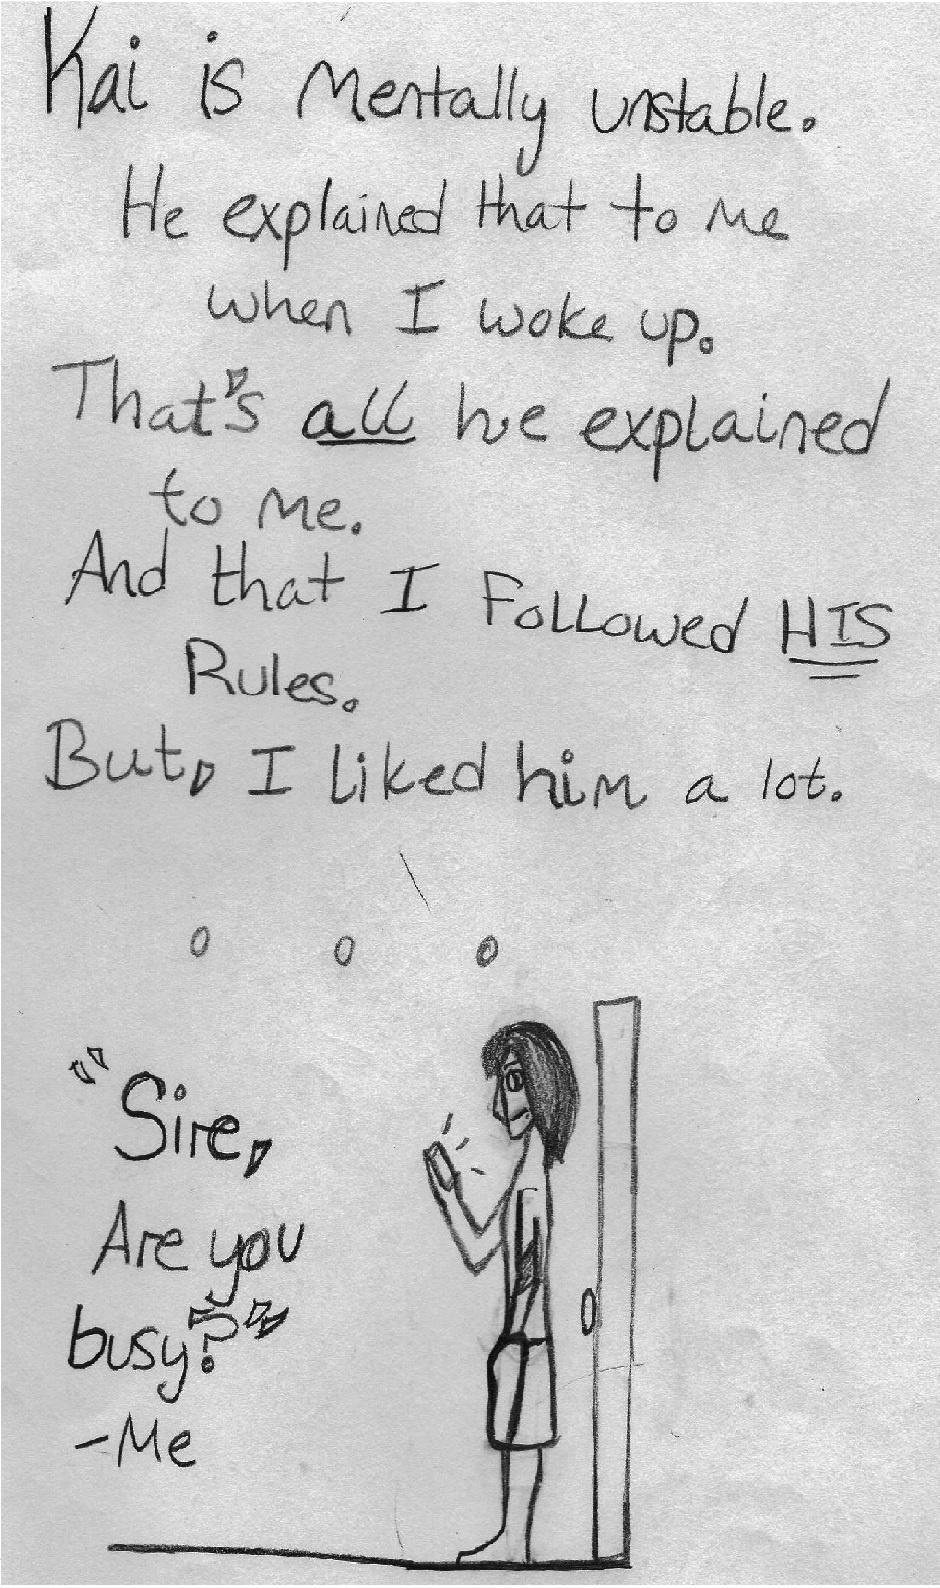 Kai is Mentally unstable.
He explained that to me
when I woke up.
That's all he explained
to me.
And that I Followed HIS
Rules.
But, I liked him a lot.
"Sire,
Are you
busy?"
-Me